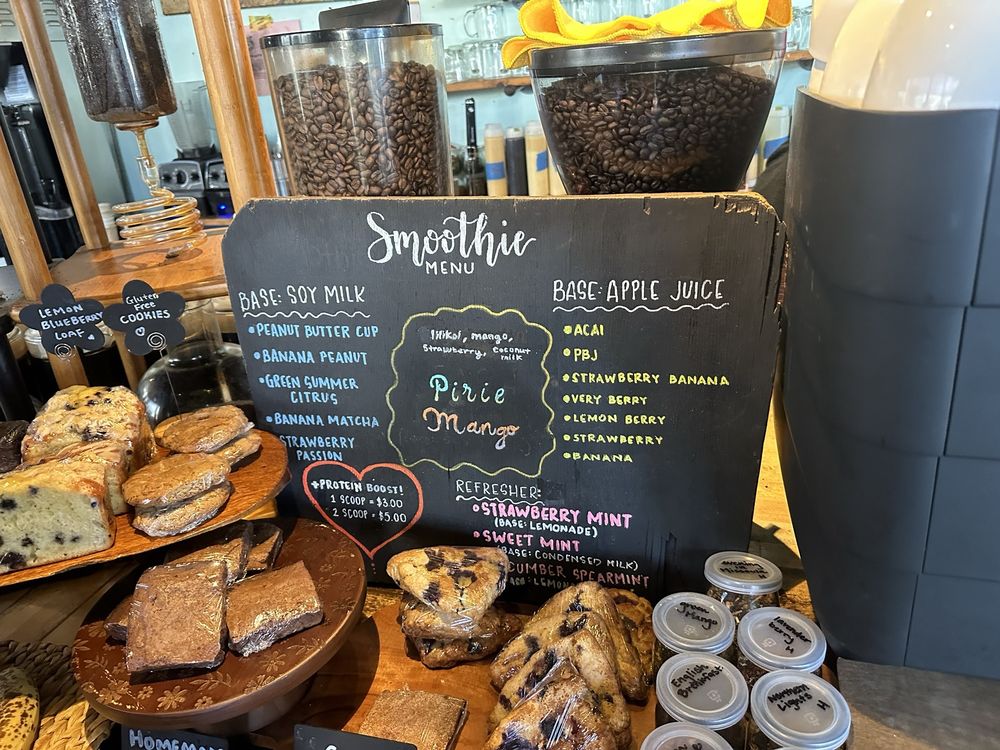 Smoothie
MENU
BASE: SOY MILK
• PEANUT BUTTER CUP
• BANANA PEANUT
• GREEN SUMMER
CITRUS
• BANANA MATCHA
STRAWBERRY
PASSION
+PROTEIN BOOST!
1 SCOOP = $3.00
2 SCOOP = $5.00
lilikoi, mango,
strawberry, coconut
milk
Pirie
Mango
BASE: APPLE JUICE
• ACAI
• PBJ
• STRAWBERRY BANANA
• VERY BERRY
• LEMON BERRY
• STRAWBERRY
• BANANA
REFRESHER:
• STRAWBERRY MINT
(BASE: LEMONADE)
• SWEET MINT
(BASE: CONDENSED MILK)
CUMBER SPEARMINT
LEMON
LEMON
BLUEBERRY
LOAF
Gluten
Free
COOKIES
HOMEMA
Green
Mango
English
Breakfast
lavender
Northern
Lights
H